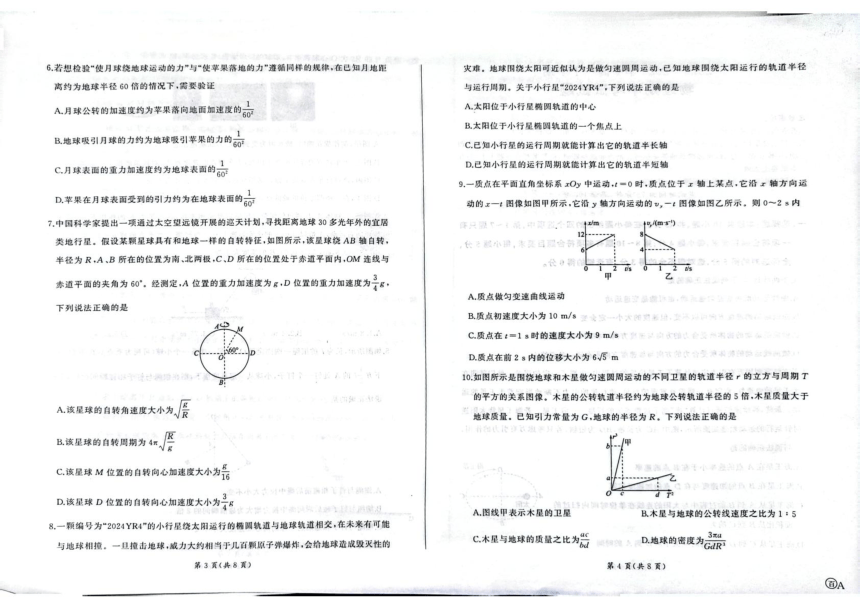 6.若想检验“使月球绕地球运动的力”与“使苹果落地的力”遵循同样的规律,在已知月地距
离约为地球半径 60 倍的情况下,需要验证
A.月球公转的加速度约为苹果落向地面加速度的 1/60²
B.地球吸引月球的力约为地球吸引苹果的力的 1/60²
C.月球表面的重力加速度约为地球表面的 1/60²
D.苹果在月球表面受到的引力约为在地球表面的 1/60²
7.中国科学家提出一项通过太空望远镜开展的巡天计划,寻找距离地球 30 多光年外的宜居
类地行星。假设某颗星球具有和地球一样的自转特征,如图所示,该星球绕 AB 轴自转,
半径为 R,A、B 所在的位置为南、北两极,C、D 所在的位置处于赤道平面内,OM 连线与
赤道平面的夹角为 60°。经测定,A 位置的重力加速度为 g,D 位置的重力加速度为 3/4 g,
下列说法正确的是
A
M
C
O
60°
D
B
A.该星球的自转角速度大小为 √(g/R)
B.该星球的自转周期为 4π√(R/g)
C.该星球 M 位置的自转向心加速度大小为 g/16
D.该星球 D 位置的自转向心加速度大小为 3/4 g
8.一颗编号为“2024YR4”的小行星绕太阳运行的椭圆轨道与地球轨道相交,在未来有可能
与地球相撞。一旦撞击地球,威力大约相当于几百颗原子弹爆炸,会给地球造成毁灭性的
第 3 页(共 8 页)
灾难。地球围绕太阳可近似认为是做匀速圆周运动,已知地球围绕太阳运行的轨道半径
与运行周期。关于小行星“2024YR4”,下列说法正确的是
A.太阳位于小行星椭圆轨道的中心
B.太阳位于小行星椭圆轨道的一个焦点上
C.已知小行星的运行周期就能计算出它的轨道半长轴
D.已知小行星的运行周期就能计算出它的轨道半短轴
9.一质点在平面直角坐标系 xOy 中运动,t=0 时,质点位于 x 轴上某点,它沿 x 轴方向运
动的 x—t 图像如图甲所示,它沿 y 轴方向运动的 vy—t 图像如图乙所示。则 0~2 s 内
x/m
12
6
0 1 2 t/s
甲
vy/(m·s⁻¹)
8
4
0 1 2 t/s
乙
A.质点做匀变速曲线运动
B.质点初速度大小为 10 m/s
C.质点在 t=1 s 时的速度大小为 9 m/s
D.质点在前 2 s 内的位移大小为 6√5 m
10.如图所示是围绕地球和木星做匀速圆周运动的不同卫星的轨道半径 r 的立方与周期 T
的平方的关系图像。木星的公转轨道半径约为地球公转轨道半径的 5 倍,木星质量大于
地球质量。已知引力常量为 G,地球的半径为 R。下列说法正确的是
r³
b
甲
a
乙
O c d T²
A.图线甲表示木星的卫星
B.木星与地球的公转线速度之比为 1∶5
C.木星与地球的质量之比为 ac/bd
D.地球的密度为 3πa/GdR³
第 4 页(共 8 页)
百A